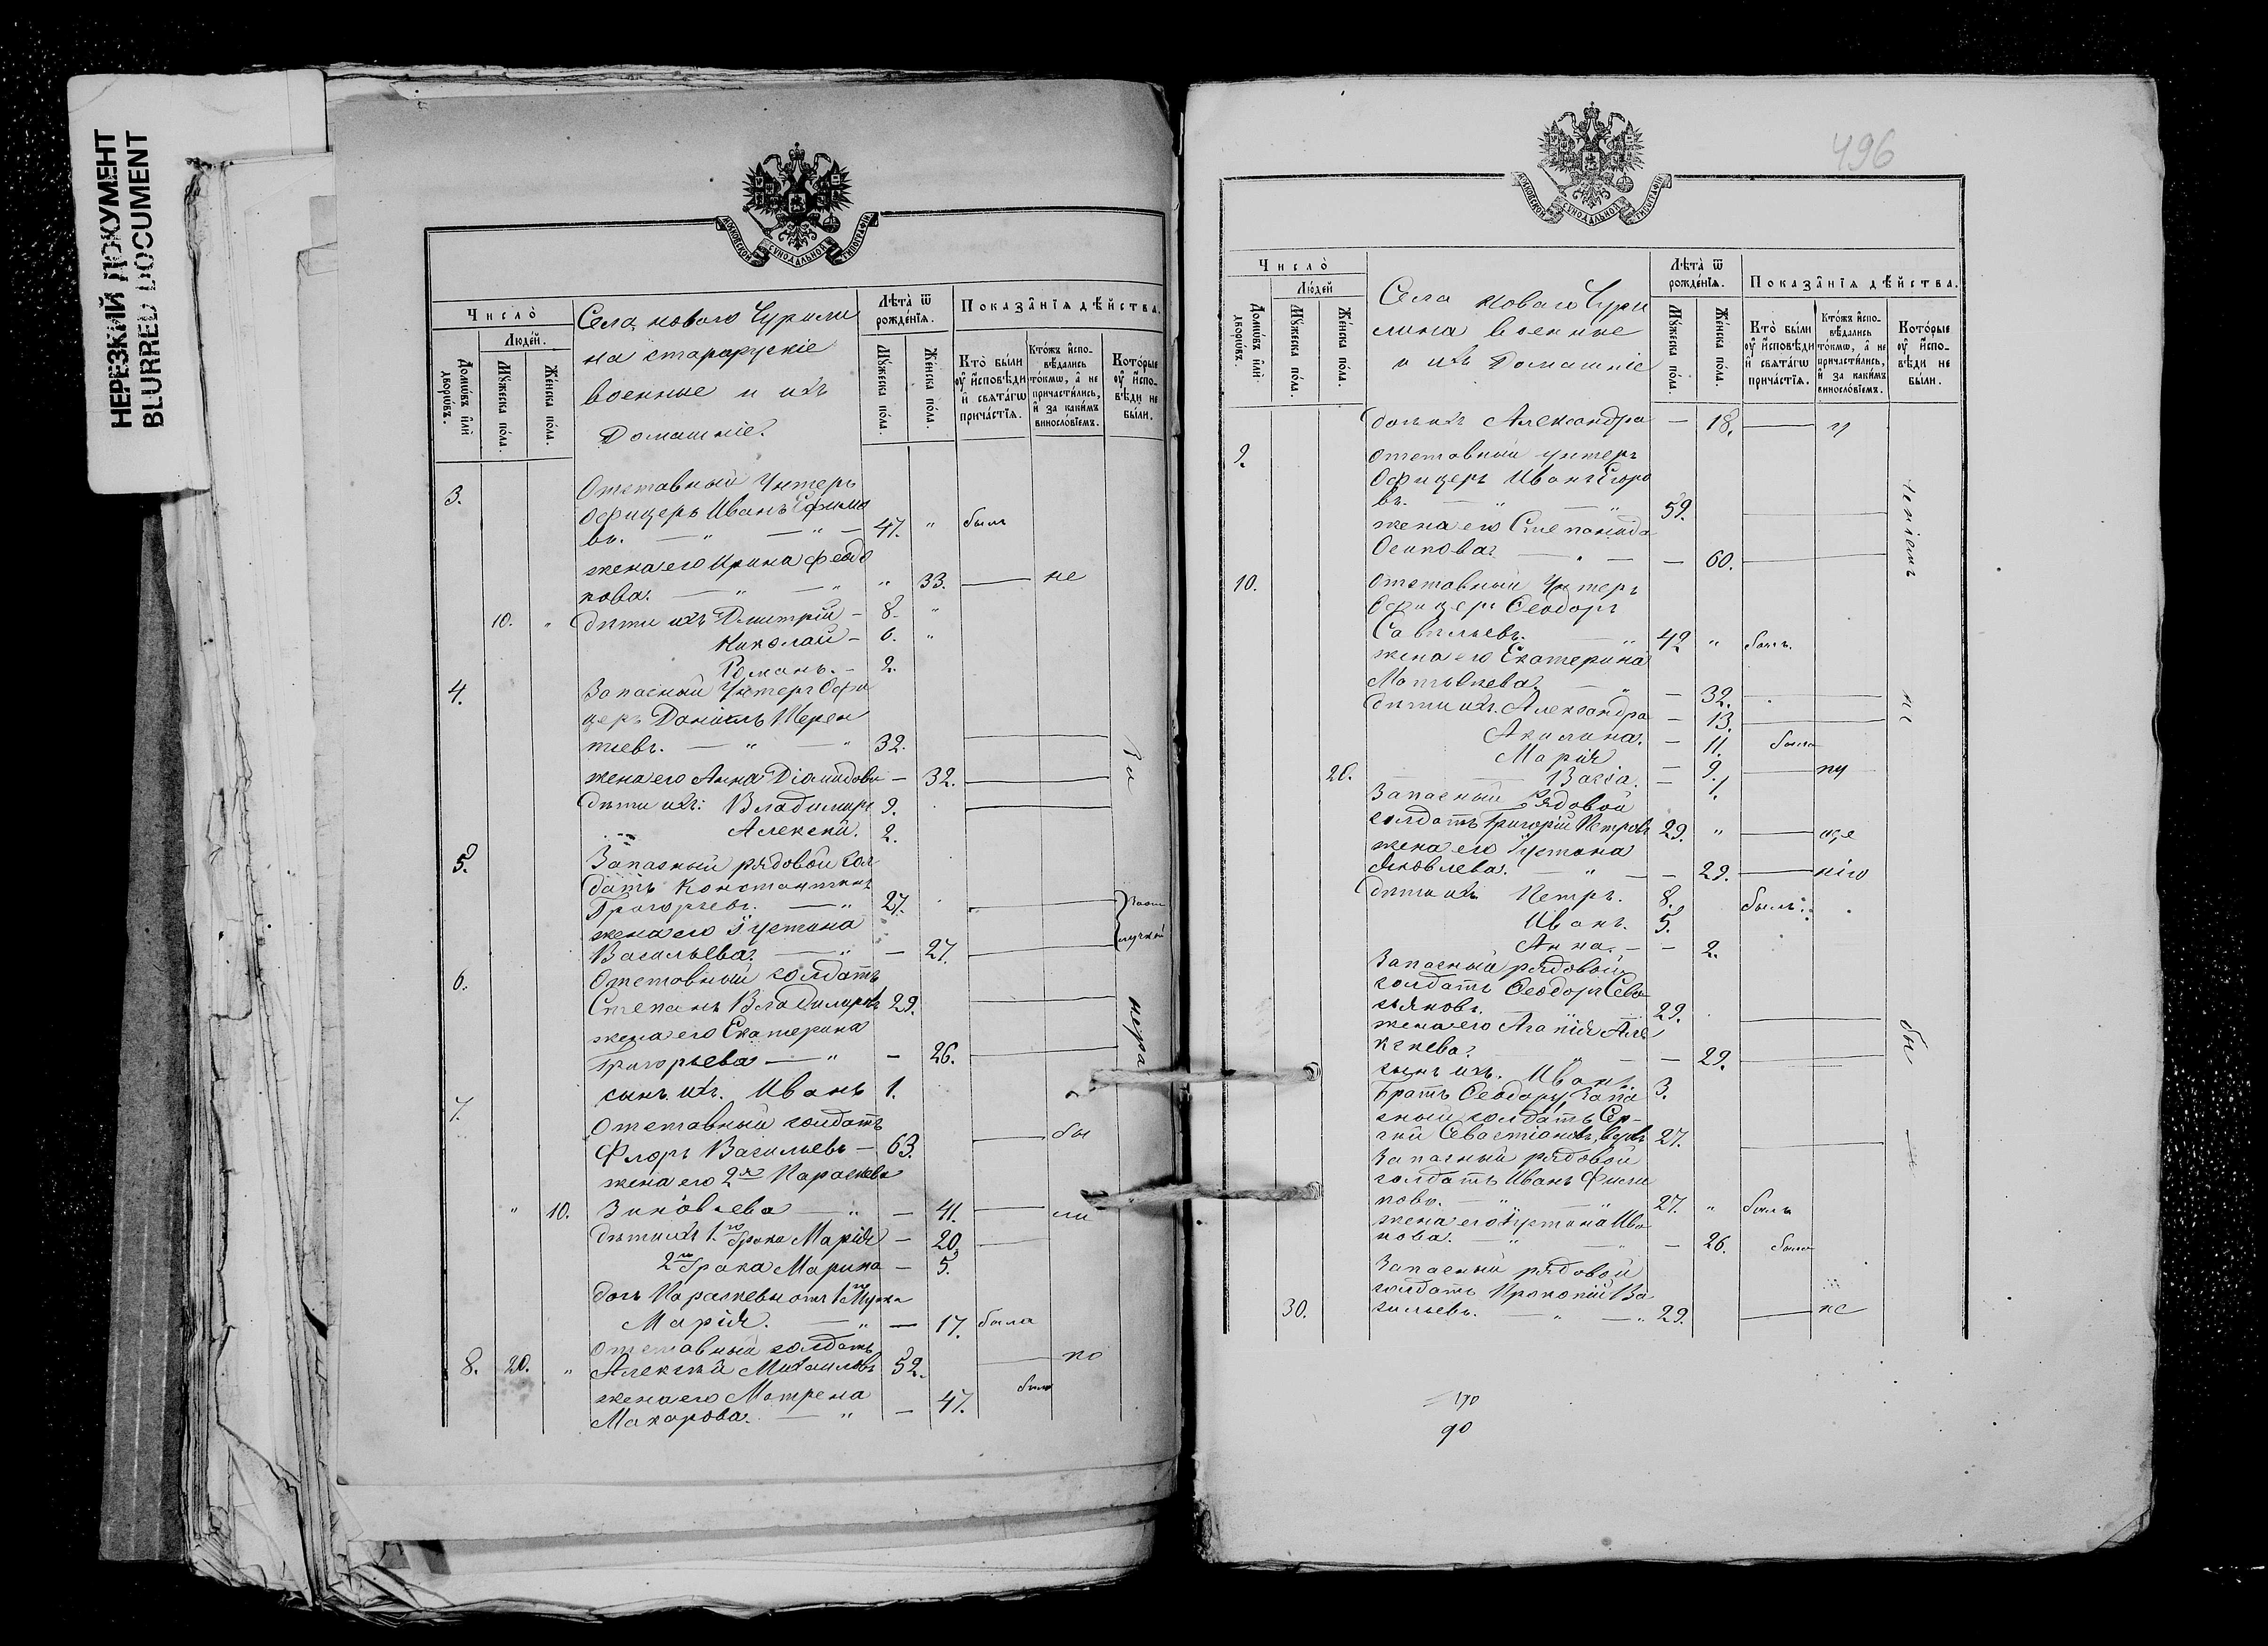 НЕРЕЗКИЙ ДОКУМЕНТ
BLURRED DOCUMENT
МОСКОВСКОЙ СѴНОДАЛЬНОЙ ТИПОГРАФІИ
Число̀
Люде́й.
Домѡ́въ и҆лѝ дворѡ́въ.
Мꙋ́жеска по́ла.
Же́нска по́ла.
Села новаго Чурили
на старорускіе
военные и ихъ
Домашніе.
Лѣ́та ѿ рожде́нїѧ.
Мꙋ́жеска по́ла.
Же́нска по́ла.
Показа̑нїѧ дѣ́йства.
Кто̀ бы́ли оу҆ и҆сповѣ́ди и҆ свѧта́гѡ прича́стїѧ.
Кто́жъ и҆сповѣ́дались то́кмѡ, а҆ не причасти́лись, и҆ за каки́мъ винословіемъ.
Кото́рые оу҆ и҆сповѣ́ди не бы́ли.
3. Отставный Унтеръ
Офицеръ Иванъ Ефимо
въ. — " — " — 47. " былъ
жена его Ирина Федо
рова. — " — " " 33. — не
10. " дѣти ихъ Дмитрій — 8. "
Николай — 6. "
Романъ. — 2.
4. Запасный Унтеръ Офи
церъ Даніилъ Терен
тьевъ. — " — " 32.
жена его Анна Діомидова — 32.
дѣти ихъ: Владимиръ 9.
Алексѣй. 2.
5. Запасный рядовой сол
датъ Константинъ
Григорьевъ. — " 27.
жена его Іустина
Васильева. — " — 27.
6. Отставный солдатъ
Степанъ Владимировъ 29.
жена его Екатерина
Григорьева — " — 26.
сынъ ихъ. Иванъ 1.
7. Отставный солдатъ
Флоръ Васильевъ — 63. — бы
жена его 2я Параскева
" 10. Зиновьева — " — 41. — ли
дѣти ихъ 1го брака Марія — 20. —
2го брака Марина — 5.
дочь Параскевы отъ 1го мужа
Марія. — " — 17. была
Отставный солдатъ
8. 20. " Алексѣй Михаиловъ 52. — по
жена его Матрена
Макарова. — " — 47. была
За
нера
496
МОСКОВСКОЙ СѴНОДАЛЬНОЙ ТИПОГРАФІИ
Число̀
Люде́й
Домѡ́въ и҆лѝ дворѡ́въ.
Мꙋ́жеска по́ла.
Же́нска по́ла.
Села новаго Чури
лина военные
и ихъ Домашніе
Лѣ́та ѿ рожде́нїѧ.
Мꙋ́жеска по́ла.
Же́нска по́ла.
Показа̑нїѧ дѣ́йства.
Кто̀ бы́ли оу҆ и҆сповѣ́ди и҆ свѧта́гѡ прича́стїѧ.
Кто́жъ и҆сповѣ́дались то́кмѡ, а҆ не причасти́лись, и҆ за каки́мъ винословіемъ.
Кото́рые оу҆ и҆сповѣ́ди не бы́ли.
дочь ихъ Александра — 18. — у
9. Отставный унтеръ
Офицеръ Иванъ Егоро
въ. — " — " 59.
жена его Степанида
Осипова. — " — — 60.
10. Отставный Унтеръ
Офицеръ Ѳеодоръ
Савельевъ. — " 42 " былъ.
жена его Екатерина
Матѳѣева. — " — 32.
дѣти ихъ. Александра — 13.
Акилина. — 11. была
Марія — 9. — пу
20. Васса. — 1.
Запасный рядовой
солдатъ Григорій Петровъ 29. " — ще
жена его Іустина
Яковлева. — " — — 29. — нію
дѣти ихъ Петръ. 8. былъ.
Иванъ. 5.
Анна. — — 2.
Запасный рядовой
солдатъ Ѳеодоръ Сева
стьяновъ. 29.
жена его Агапія Але
ксѣева. — 29.
сынъ ихъ. Иванъ. 3.
Братъ Ѳеодору запа
сный солдатъ Сер-
гѣй Севастіановъ, вдовъ 27.
Запасный рядовой
солдатъ Иванъ Фили
повъ. — " — " 27. " былъ
жена его Іустина Ива
нова. — " — 26. была
Запасный рядовой
солдатъ Прокопій Ва
30. сильевъ. — " — " 29. — не
ченіемъ
не
бы
90